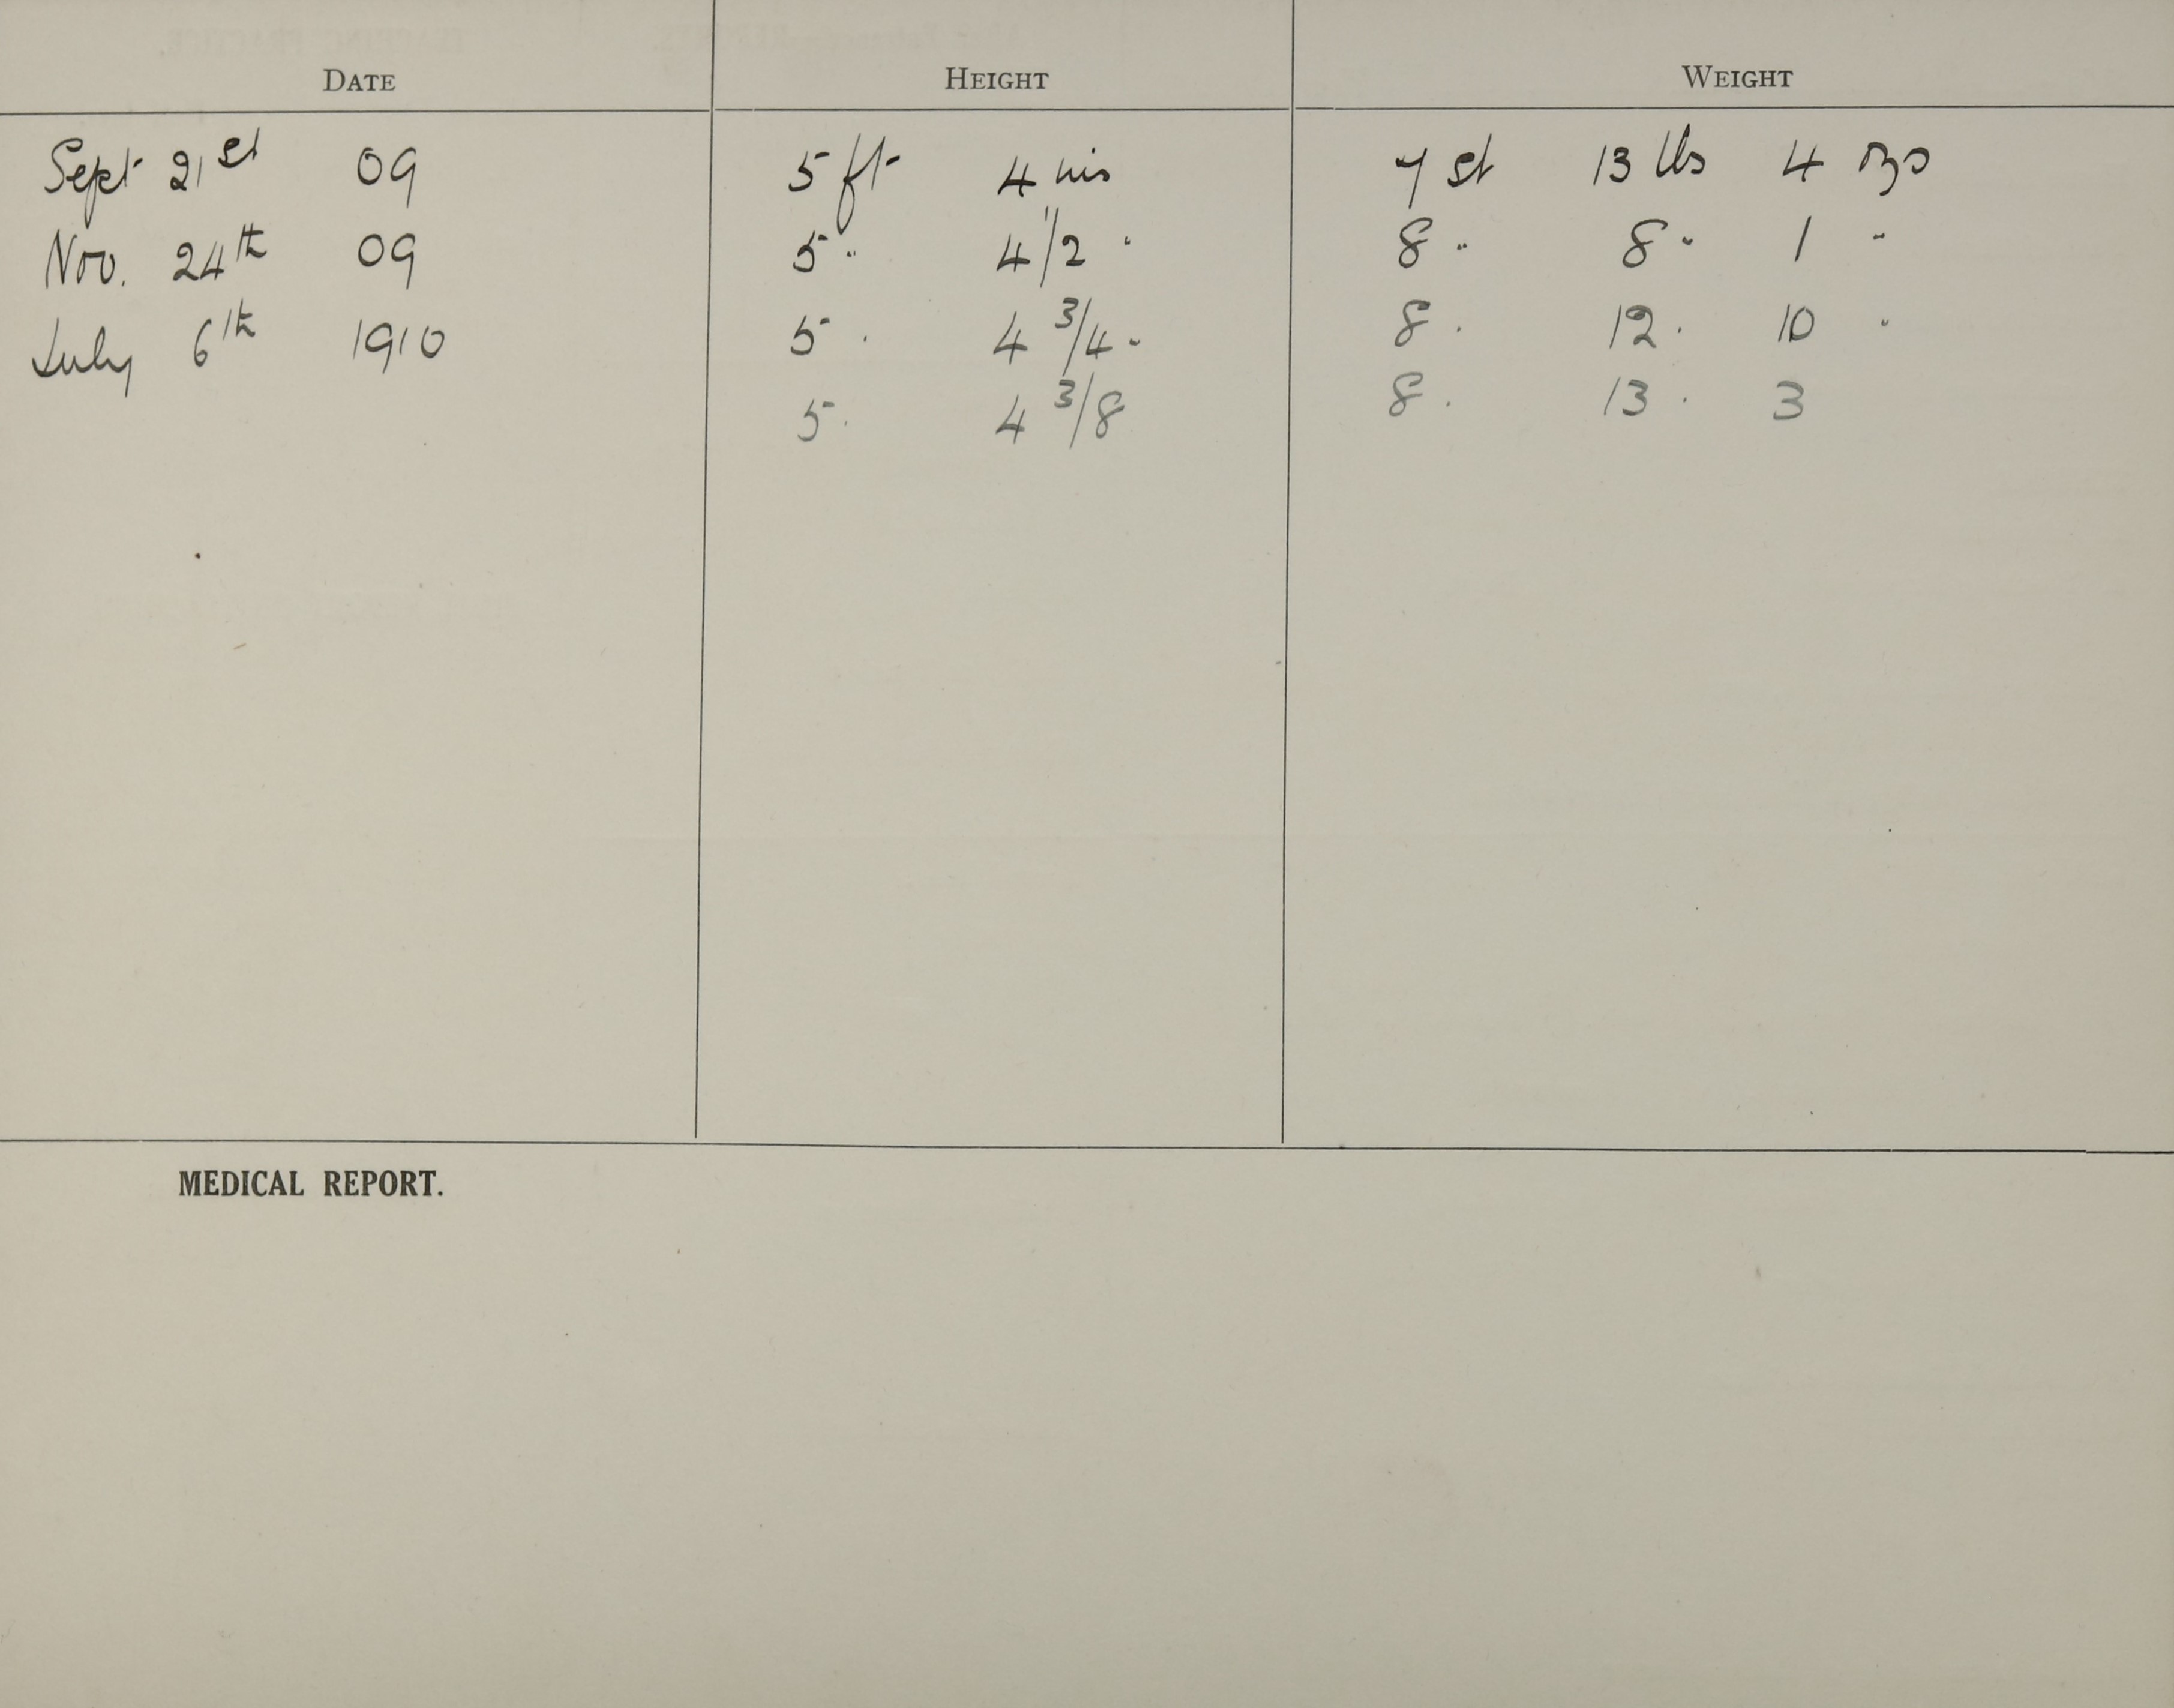 DATE HEIGHT WEIGHT
Sept 21st 09 5 ft 4 ins 7 st 13 lbs 4 ozs
Nov. 24th 09 5 " 4 1/2 " 8 " 8 " 1 "
July 6th 1910 5 " 4 3/4 " 8 " 12 " 10 "
5 " 4 3/8 8 " 13 " 3
MEDICAL REPORT.